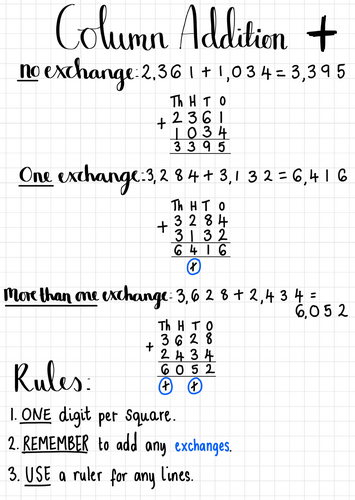 Column Addition +
no exchange: 2,361 + 1,034 = 3,395
Th H T O
2 3 6 1
+ 1 0 3 4
3 3 9 5
One exchange: 3,284 + 3,132 = 6,416
Th H T O
+ 3 2 8 4
3 1 3 2
6 4 1 6
More than one exchange: 3,628 + 2,434 =
6,052
Th H T O
3 6 2 8
+ 2 4 3 4
6 0 5 2
Rules:
1. ONE digit per square.
2. REMEMBER to add any exchanges.
3. USE a ruler for any lines.